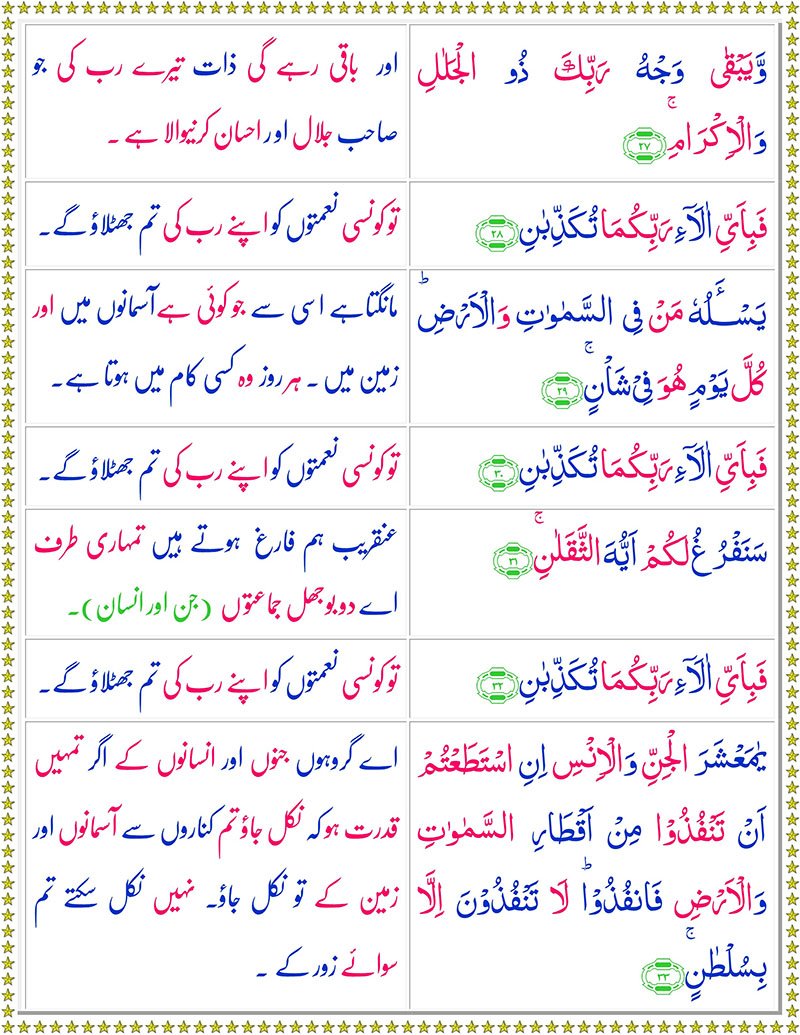 وَّيَبْقٰى وَجْهُ رَبِّكَ ذُو الْجَلٰلِ
وَالْاِكْرَامِۚ ۝۲۷
اور باقی رہے گی ذات تیرے رب کی جو
صاحب جلال اور احسان کرنیوالا ہے ۔
فَبِاَيِّ اٰلَآءِ رَبِّكُمَا تُكَذِّبٰنِ ۝۲۸
تو کونسی نعمتوں کو اپنے رب کی تم جھٹلاؤ گے۔
يَسْـَٔلُهٗ مَنْ فِي السَّمٰوٰتِ وَالْاَرْضِ ؕ
كُلَّ يَوْمٍ هُوَ فِيْ شَاْنٍۚ ۝۲۹
مانگتا ہے اسی سے جو کوئی ہے آسمانوں میں اور
زمین میں ۔ ہر روز وہ کسی کام میں ہوتا ہے۔
فَبِاَيِّ اٰلَآءِ رَبِّكُمَا تُكَذِّبٰنِ ۝۳۰
تو کونسی نعمتوں کو اپنے رب کی تم جھٹلاؤ گے۔
سَنَفْرُغُ لَكُمْ اَيُّهَ الثَّقَلٰنِۚ ۝۳۱
عنقریب ہم فارغ ہوتے ہیں تمہاری طرف
اے دو بوجھل جماعتوں (جن اور انسان)۔
فَبِاَيِّ اٰلَآءِ رَبِّكُمَا تُكَذِّبٰنِ ۝۳۲
تو کونسی نعمتوں کو اپنے رب کی تم جھٹلاؤ گے۔
يٰمَعْشَرَ الْجِنِّ وَالْاِنْسِ اِنِ اسْتَطَعْتُمْ
اَنْ تَنْفُذُوْا مِنْ اَقْطَارِ السَّمٰوٰتِ
وَالْاَرْضِ فَانْفُذُوْا ؕ لَا تَنْفُذُوْنَ اِلَّا
بِسُلْطٰنٍۚ ۝۳۳
اے گروہوں جنوں اور انسانوں کے اگر تمہیں
قدرت ہو کہ نکل جاؤ تم کناروں سے آسمانوں اور
زمین کے تو نکل جاؤ۔ نہیں نکل سکتے تم
سوائے زور کے ۔